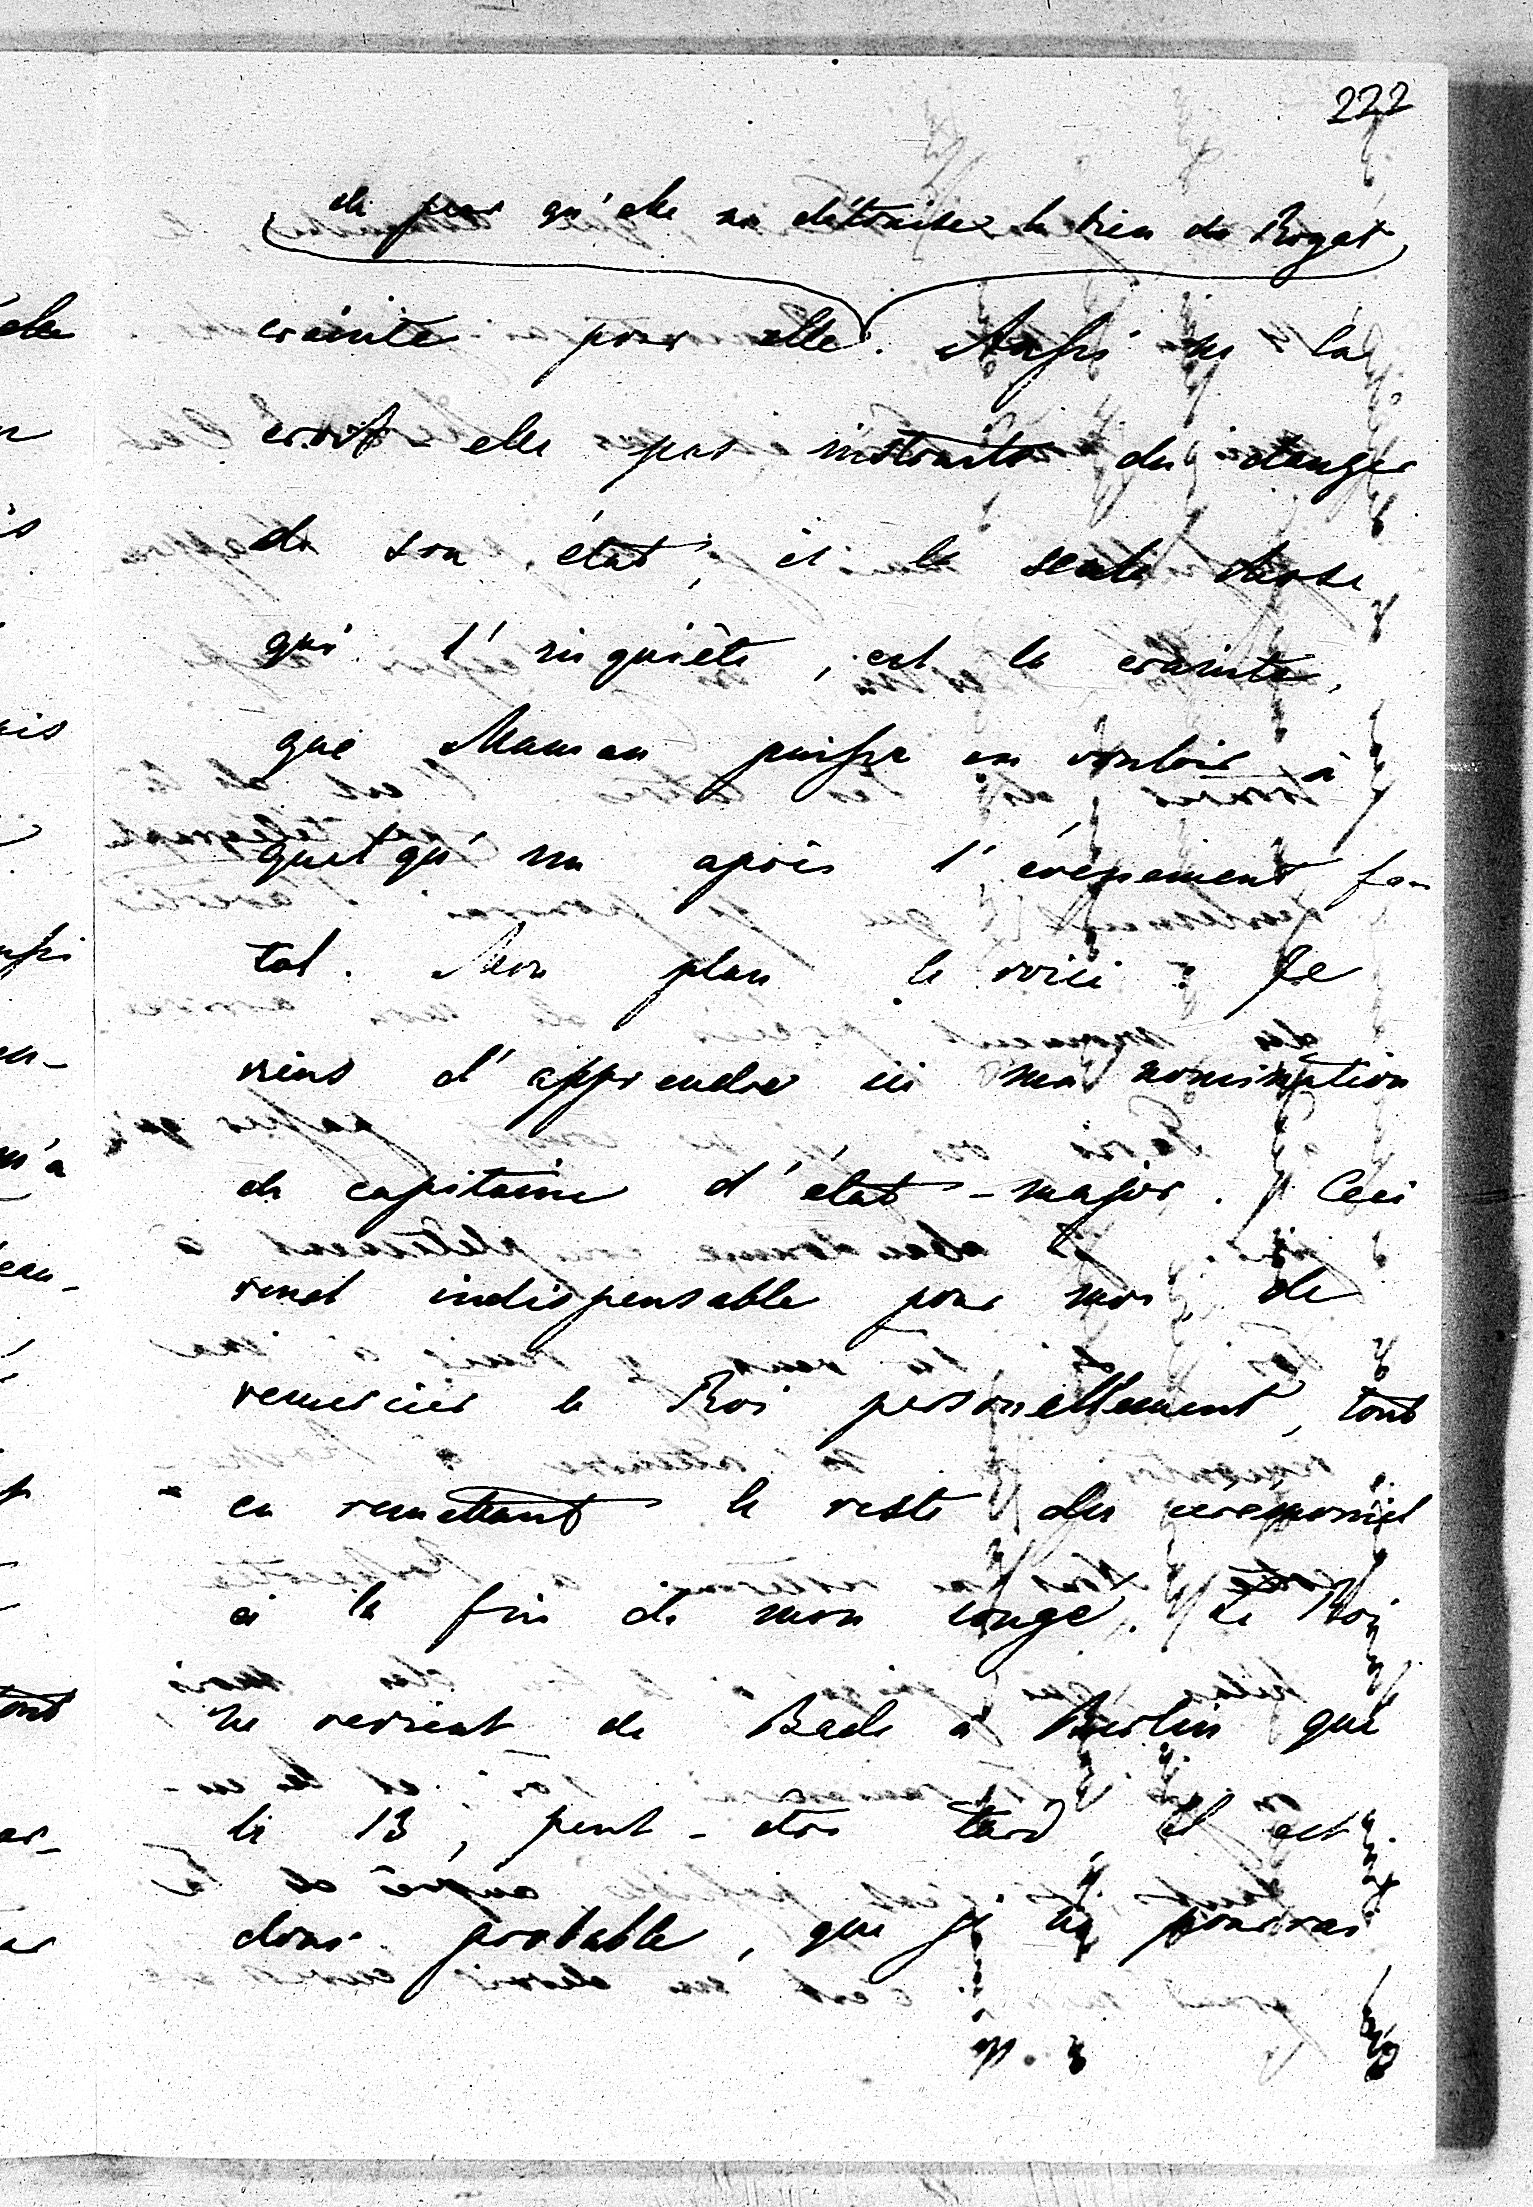 222
de peur qu'elle ne détruise le bien de Rogat
crainte pour elle. Aussi ne la
croit-elle pas instruite du danger
de son état, et la seule chose
qui l'inquiète, est la crainte,
que Maman puisse en vouloir à
quelqu'un après l'événement fa-
tal. Mon plan le voici : Je
viens d'apprendre ici ma nomination
de capitaine d'état-major. Ceci
rend indispensable pour moi de
remercier le Roi personellement, tout
en remettant le reste du ceremoniel
à la fin de mon congé. Le Roi
ne revient de Bade à Berlin que
le 13, peut-etre tard, il est
donc probable, que je ne pourrai